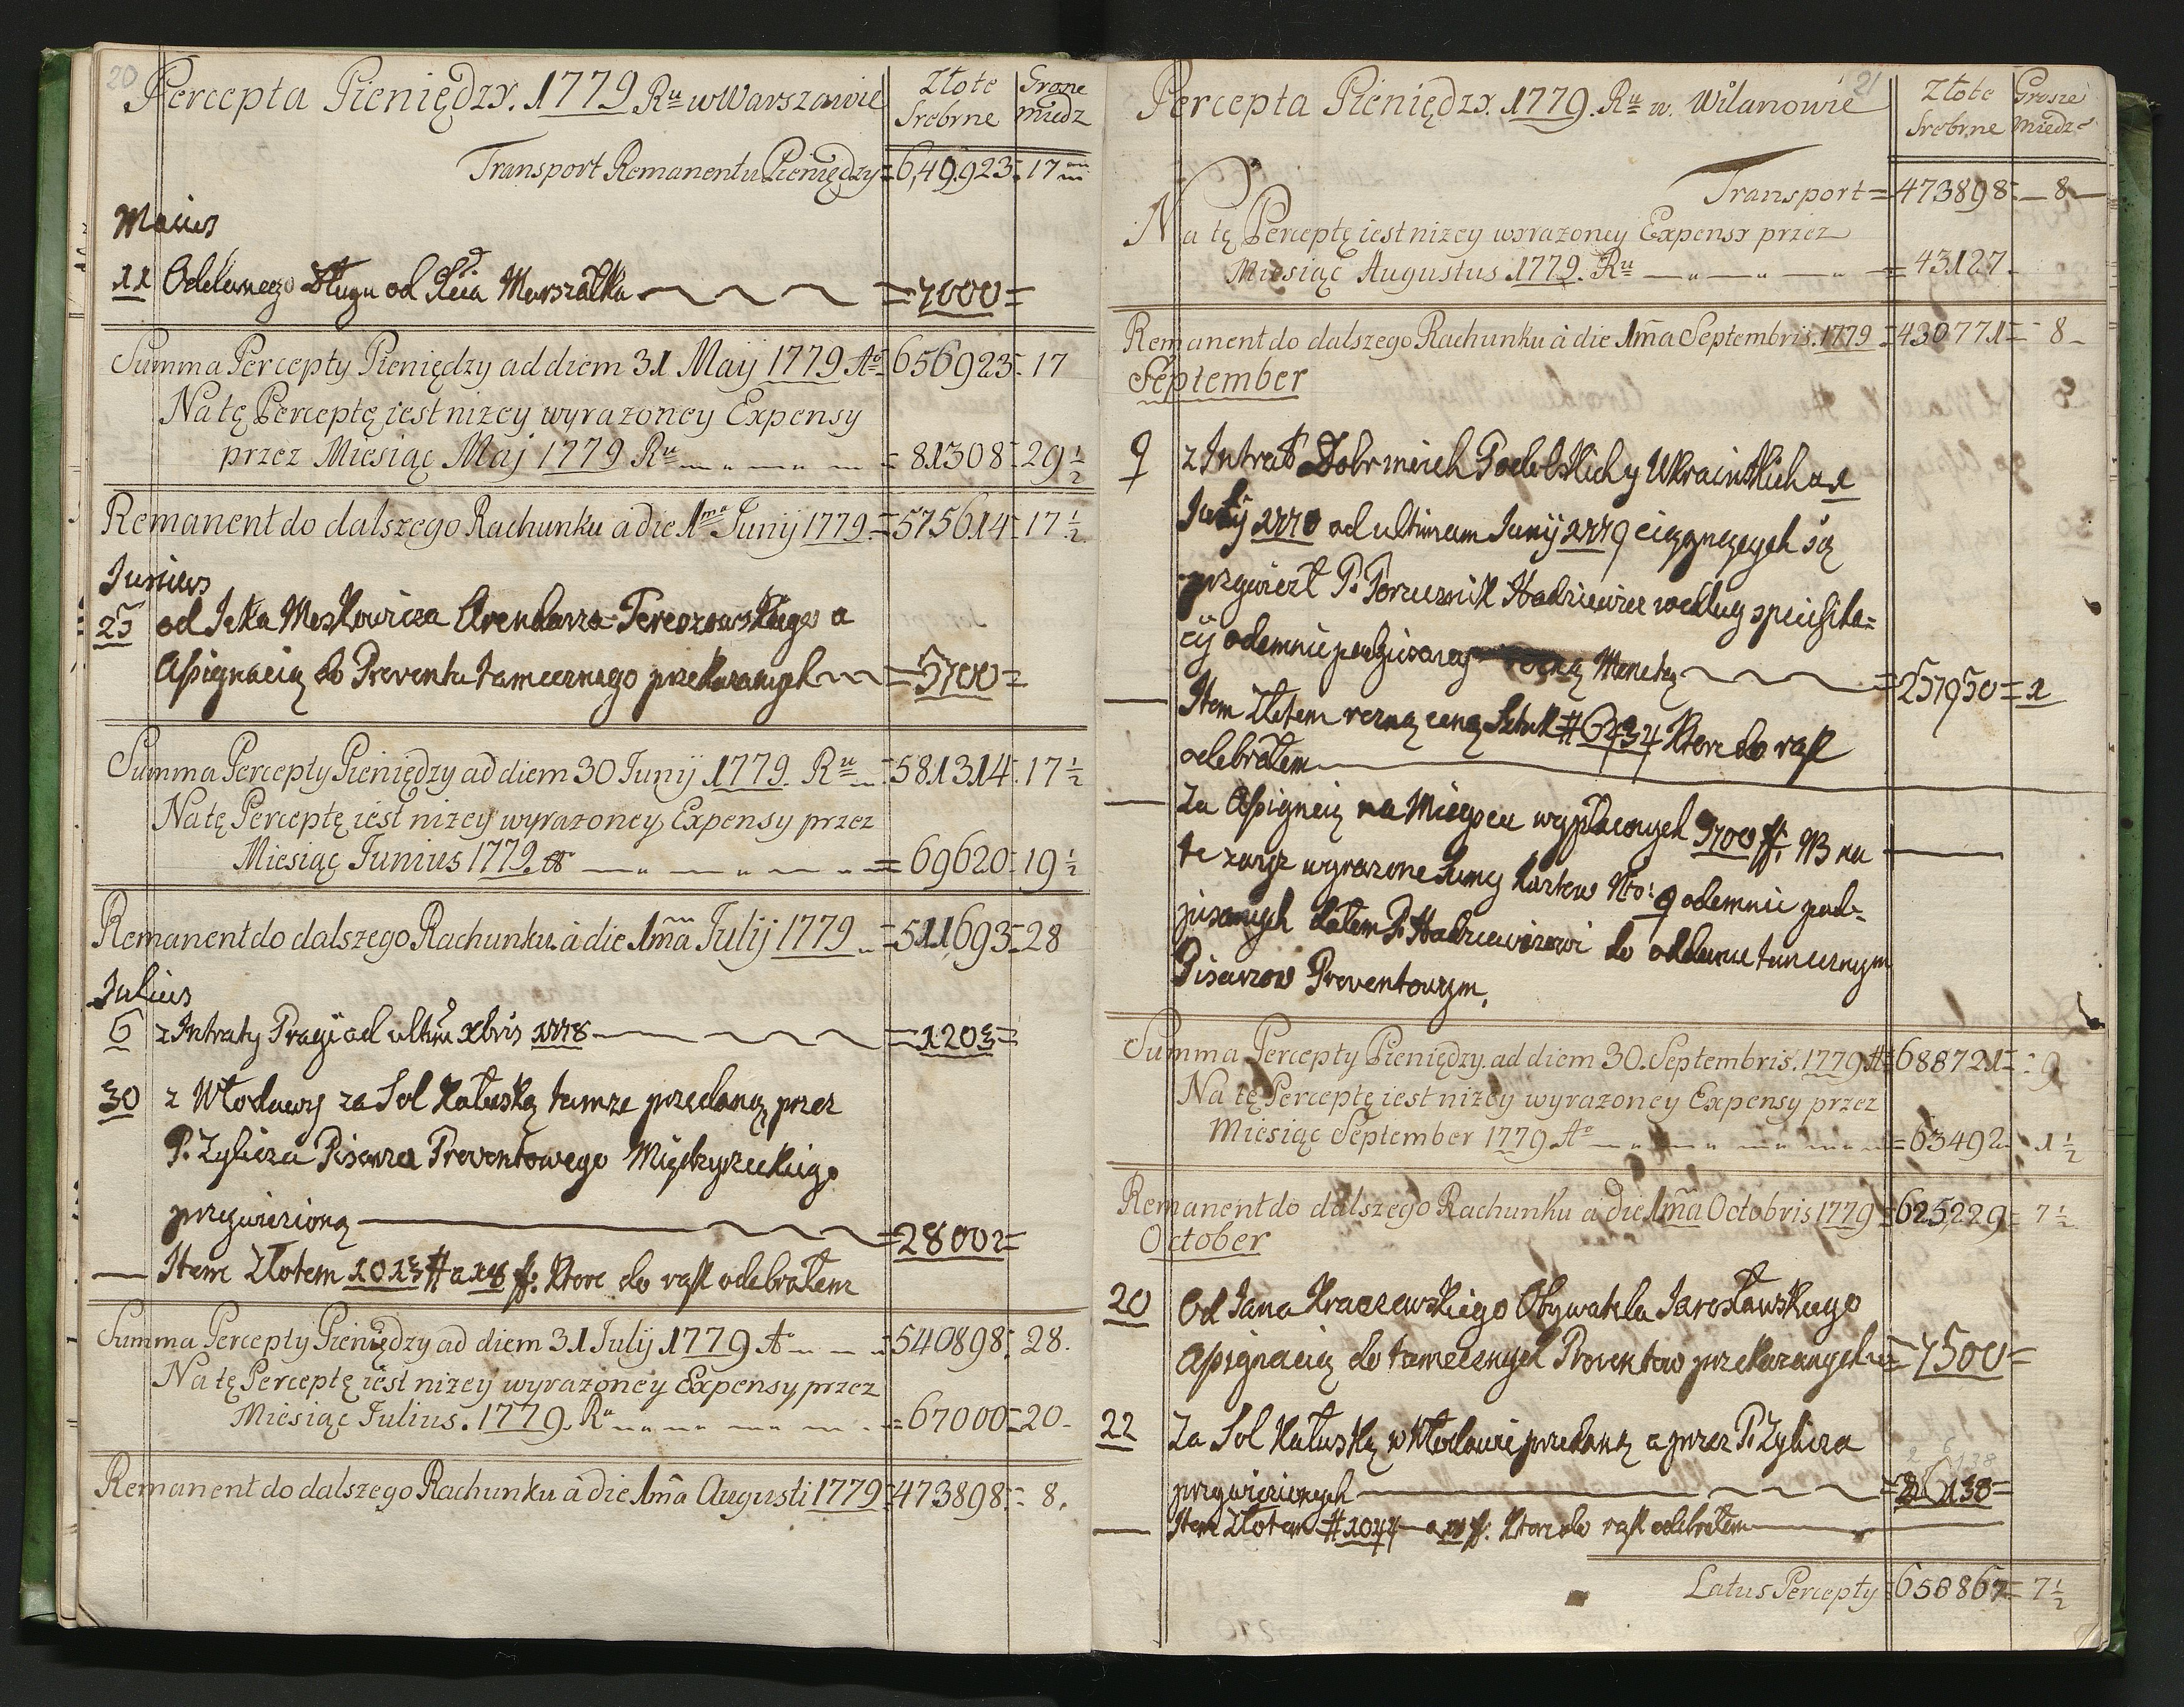 20
Percepta Pieniędzy. 1779 Ru w Warszawie
Złote Grosze
Srebrne Miedz
Transport Remanentu Pieniędzy = 6,49.923 = 17
Maius
11 Oddanego Długu od Marszałka = 7000 =
Summa Percepty Pieniędzy ad diem 31 Maij 1779 Ao = 656923 = 17
Na tę Perceptę iest niżey wyrazoney Expensy
przez Miesiąc Maj 1779 Ru = 81308 = 29 1/2
Remanent do dalszego Rachunku a die 1ma Junij 1779 = 575614 = 17 1/2
Junius
25 od Icka Moskowicza Arendarza Terezowskiego a
Assignacią do Preventu tamecznego przekazanych = 5700 =
Summa Percepty Pieniędzy ad diem 30 Junij 1779. Ru = 581314 = 17 1/2
Na tę Perceptę iest niżey wyrazoney Expensy przez
Miesiąc Junius 1779. Ao = 69620 = 19 1/2
Remanent do dalszego Rachunku à die 1ma Julij 1779 = 511693 = 28
Julius
6 z Intraty Pragi ad ultim xbris 1778 = 1203 =
30 z Włodawy za Sol Kałuską tamze przedaną przez
P. Zylicza Pisarza Preventowego Międzyrzeckiego
przywiezioną = 28002 =
Item Złotem 1013 # a 18 ff. ktore do rąk odebrałem
Summa Percepty Pieniędzy ad diem 31 Julij 1779 Ao = 540898 = 28.
Na tę Perceptę iest niżey wyrazoney Expensy przez
Miesiąc Julius. 1779. Ru = 67000 = 20
Remanent do dalszego Rachunku à die 1ma Augusti 1779 = 473898 = 8.
21
Percepta Pieniędzy. 1779. Ru w. Wilanowie
Złote Grosze
Srebrne Miedz
Transport = 473898 = 8
Na tę Perceptę iest niżey wyrazoney Expensy przez
Miesiąc Augustus 1779. Ru = 43127
Remanent do dalszego Rachunku à die 1ma Septembris. 1779 = 430771 = 8
September
9 z Intrat Dobr moich Podolskich y Ukrainskich a 1
Julij 1778 ad ultimam Junij 1779 ciągnących są
przywiozł P. Porucznik Hadziewicz według specifika=
cij odemnie podpisaney Monetą = 257950 = 1
Item Złotem rozną ceną Sztuk # 6734 ktore do rąk
odebrałem
Za Assigncią na Mieyscu wypłaconych 9700 ff. NB na
te wyrazone Sumy kartow Nto: 9 odemnie pod=
pisanych dałem P. Hadziewiczowi do oddania tamecznym
Pisarzow Preventowym.
Summa Percepty Pieniędzy. ad diem 30. Septembris. 1779 Ao = 688721 = 9
Na tę Perceptę iest niżey wyrazoney Expensy przez
Miesiąc September 1779 Ao = 63492 = 1 1/2
Remanent do dalszego Rachunku a die 1ma Octobris 1779 = 625229 = 7 1/2
October
20 Od Jana Kraczewskiego Obywatela Jarosławskiego
Assignacią do tamecznych Proventow przekazanych = 7500 =
22 Za Sol Kałuską w Włodawie przedaną a przez P. Zylicza
przywiezionych = 26138 =
Item Złotem # 1044 a 18 ff. ktore do rąk odebrałem
Latus Percepty = 658867 = 7 1/2